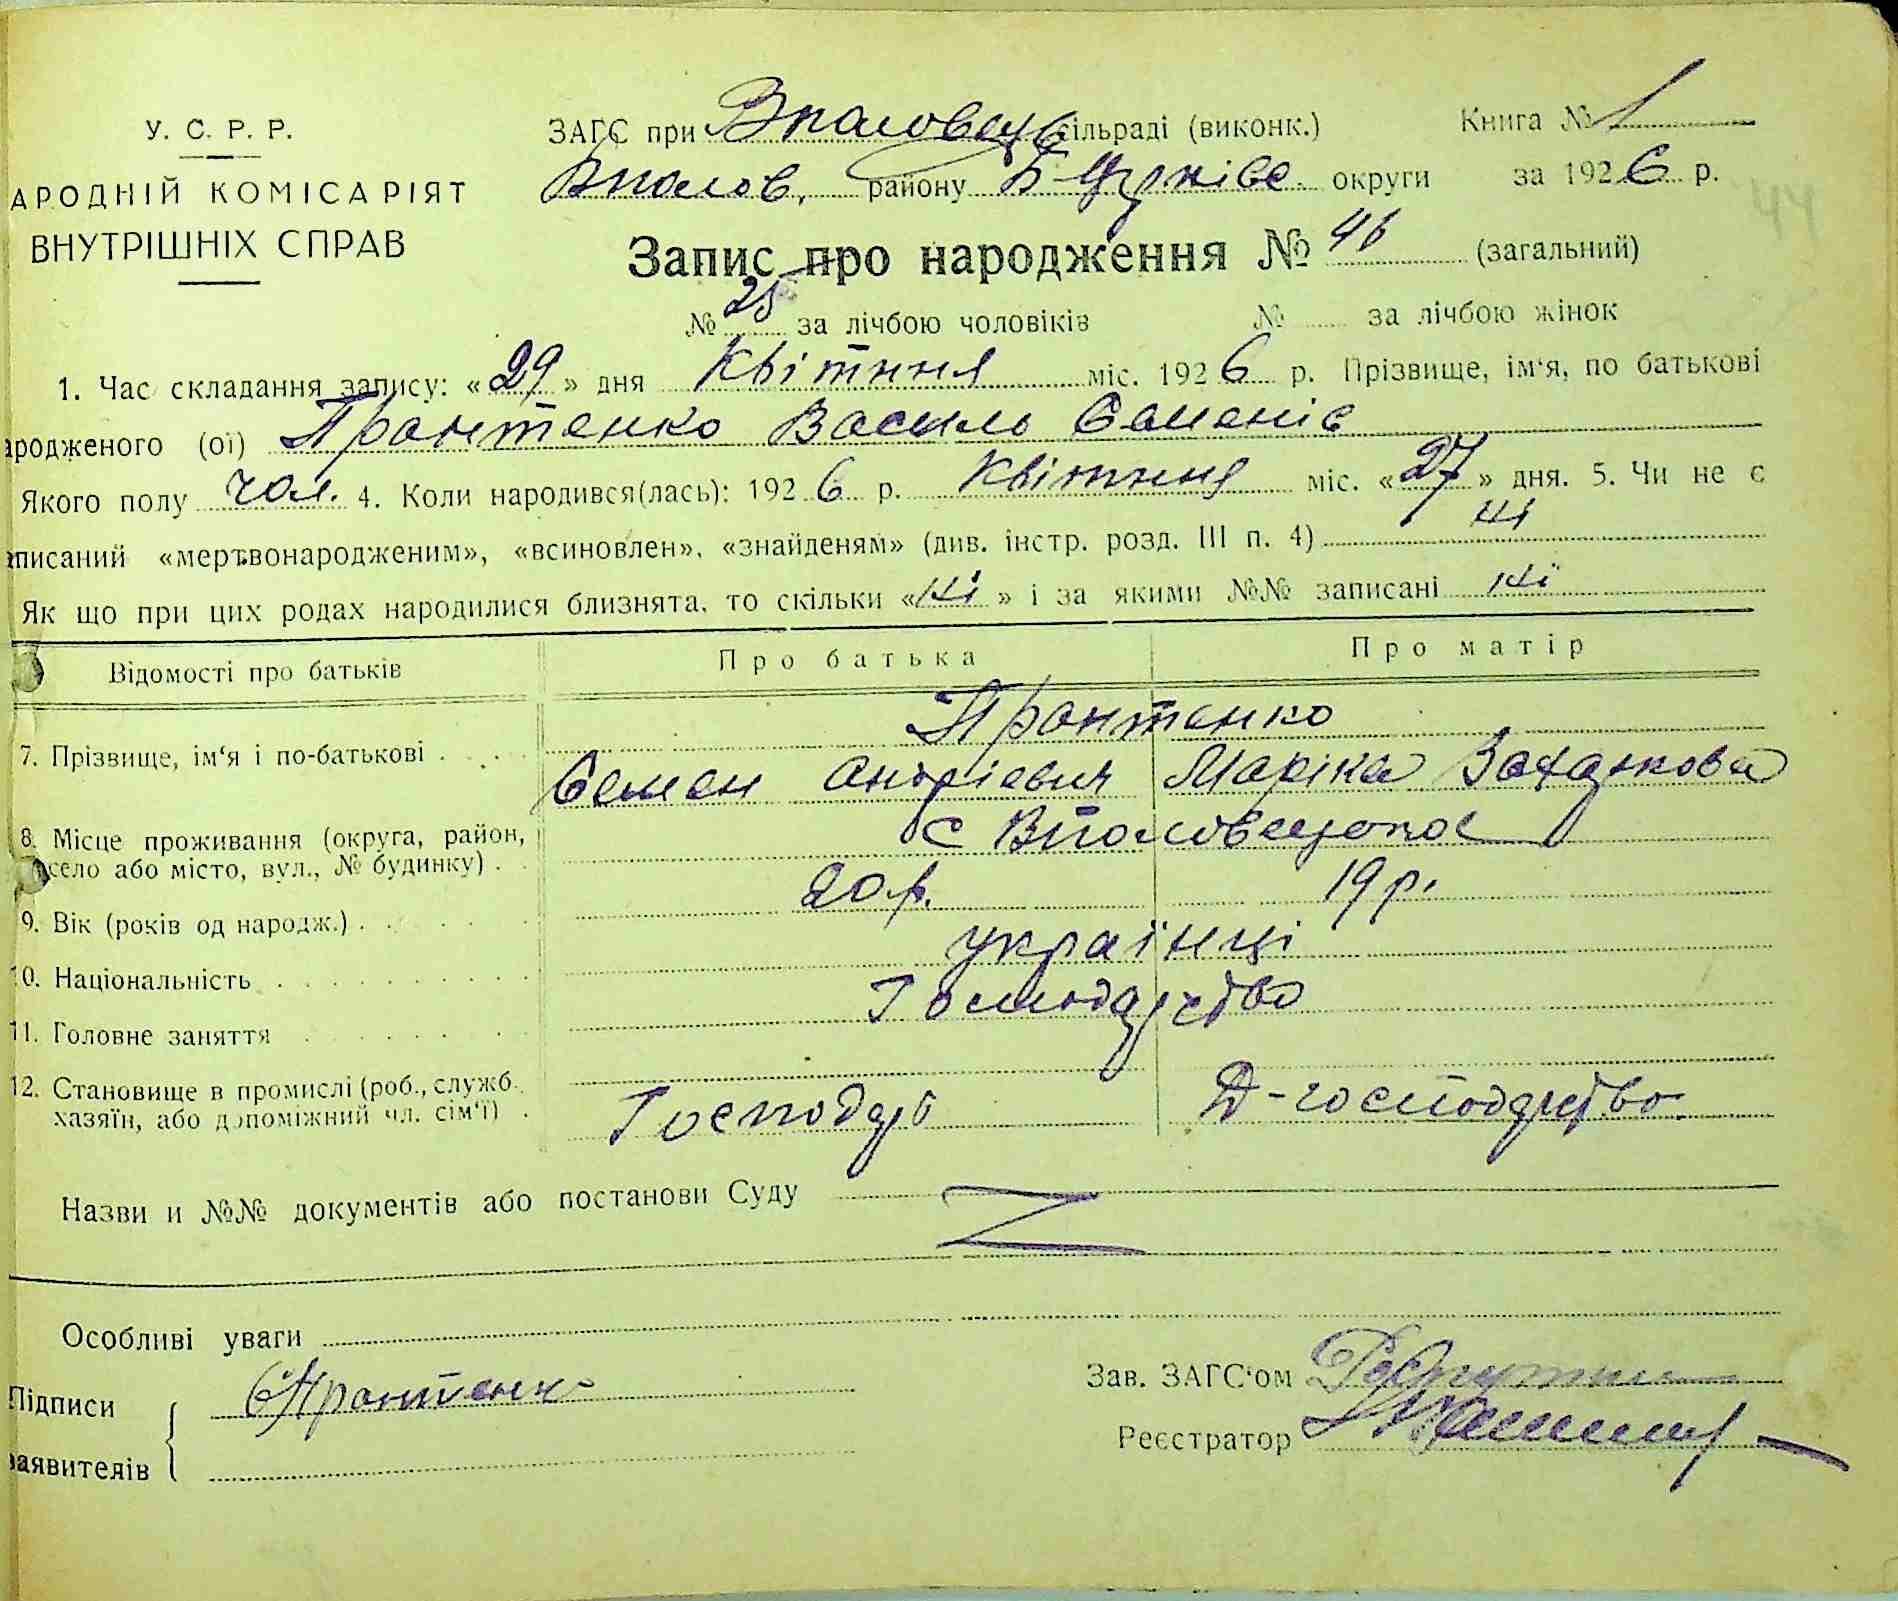 У. С. Р. Р.
АРОДНІЙ КОМІСАРІЯТ
ВНУТРІШНІХ СПРАВ
ЗАГС при сільраді (виконк.) Книга № 1
району Б-Церківс. округи за 1926 р.
44
Запис про народження № 46 (загальний)
№ 25 за лічбою чоловіків № за лічбою жінок
1. Час складання запису: «29» дня Квітння міс. 1926 р. Прізвище, ім'я, по батькові
ародженого (ої) Василь Семенів
Якого полу чол. 4. Коли народився(лась): 1926 р. Квітння міс. «27» дня. 5. Чи не є
писаний «мертвонародженим», «всиновлен», «знайденям» (див. інстр. розд. III п. 4) ні
Як що при цих родах народилися близнята, то скільки «ні» і за якими №№ записані ні
Відомості про батьків Про батька Про матір
7. Прізвище, ім'я і по-батькові
Семен Андрієвич Маріка
8. Місце проживання (округа, район, село або місто, вул., № будинку) с
9. Вік (років од народж.) 20 р. 19 р.
10. Національність українці
11. Головне заняття Господарство
12. Становище в промислі (роб., служб. хазяїн, або допоміжний чл. сім'ї) Господар Д-господарство
Назви и №№ документів або постанови Суду
Особливі уваги
Підписи
заявителів
Зав. ЗАГС'ом
Реєстратор